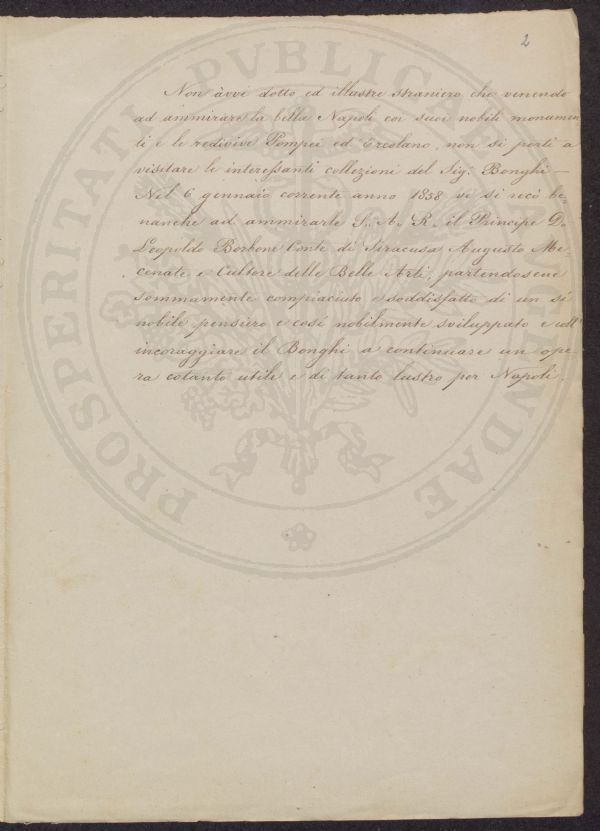 2
Non àvvi dotto ed illustre straniero che venendo
ad ammirare la bella Napoli coi suoi nobili monumen
ti e le redivive Pompei ed Ercolano, non si porti a
visitare le interessanti collezioni del Sig. Bonghi —
Nel 6 gennaio corrente anno 1858 vi si recò be
nanche ad ammirarle S. A. R. il Principe D.
Leopoldo Borbone Conte di Siracusa Augusto Me-
cenate e Cultore delle Belle Arti, partendosene
sommamente compiaciuto e soddisfatto di un sì
nobile pensiero e così nobilmente sviluppato e coll'
incoraggiare il Bonghi a continuare un ope
ra cotanto utile e di tanto lustro per Napoli.
PROSPERITATI PVBLICAE AVGENDAE